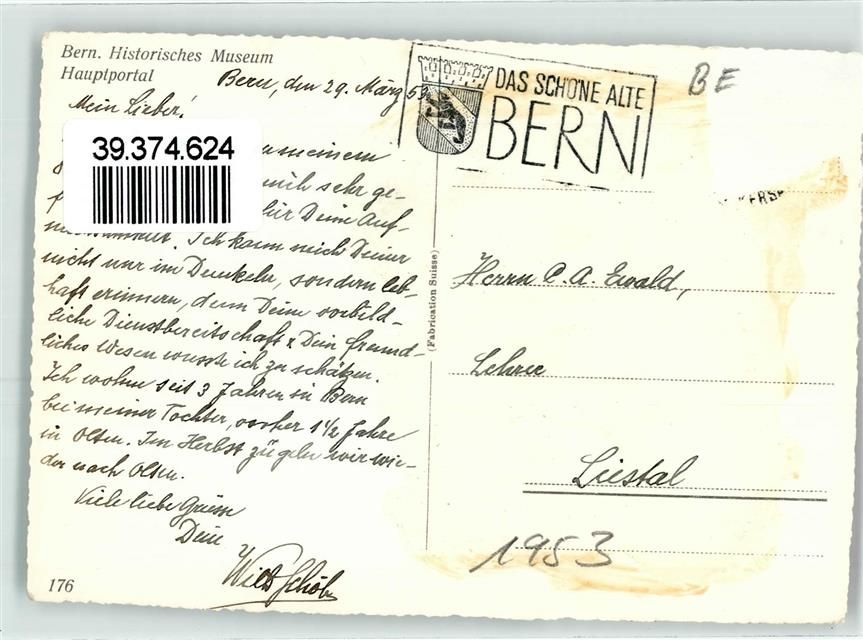 Bern. Historisches Museum
Hauptportal
Bern, den 29. März 53
Mein Lieber!
39.374.624
meinem
mich sehr ge-
für Deine Auf-
merksamkeit. Ich kann mich Deiner
nicht nur im Dunkeln, sondern leb-
haft erinnern, denn Deine vorbild-
liche Dienstbereitschaft & Dein freund-
liches Wesen wusste ich zu schätzen.
Ich wohne seit 3 Jahren in Bern
bei meiner Tochter, vorher 1½ Jahre
in Olten. Im Herbst zügeln wir wie-
der nach Olten.
Viele liebe Grüsse
Dein
Willy
176
(Fabrication Suisse)
DAS SCHÖNE ALTE
BERN
BE
Herrn C. A. Ewald,
Lehrer
Liestal
1953